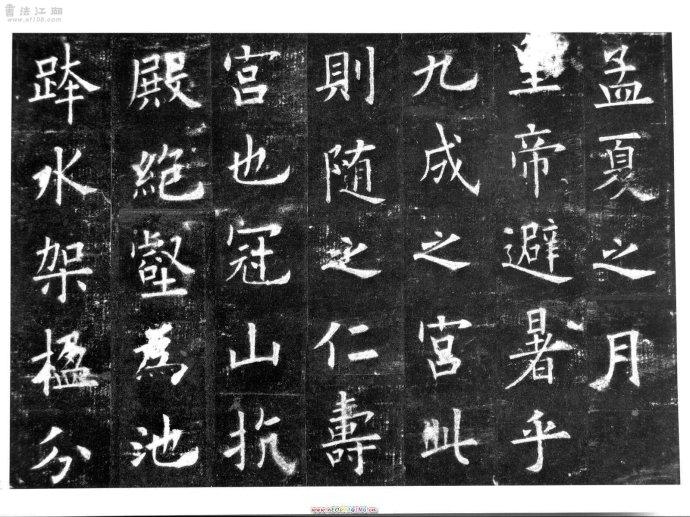 孟夏之月
皇帝避暑乎
九成之宮此
則随之仁壽
宮也冠山抗
殿絕壑為池
跨水架楹分
書法江湖